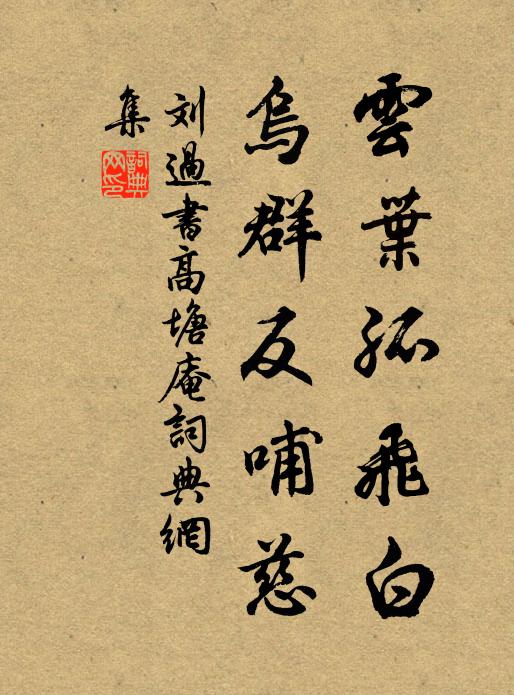 雲葉孤飛白
烏群反哺慈
刘過書高塘庵詞典網
集
詞典
网印